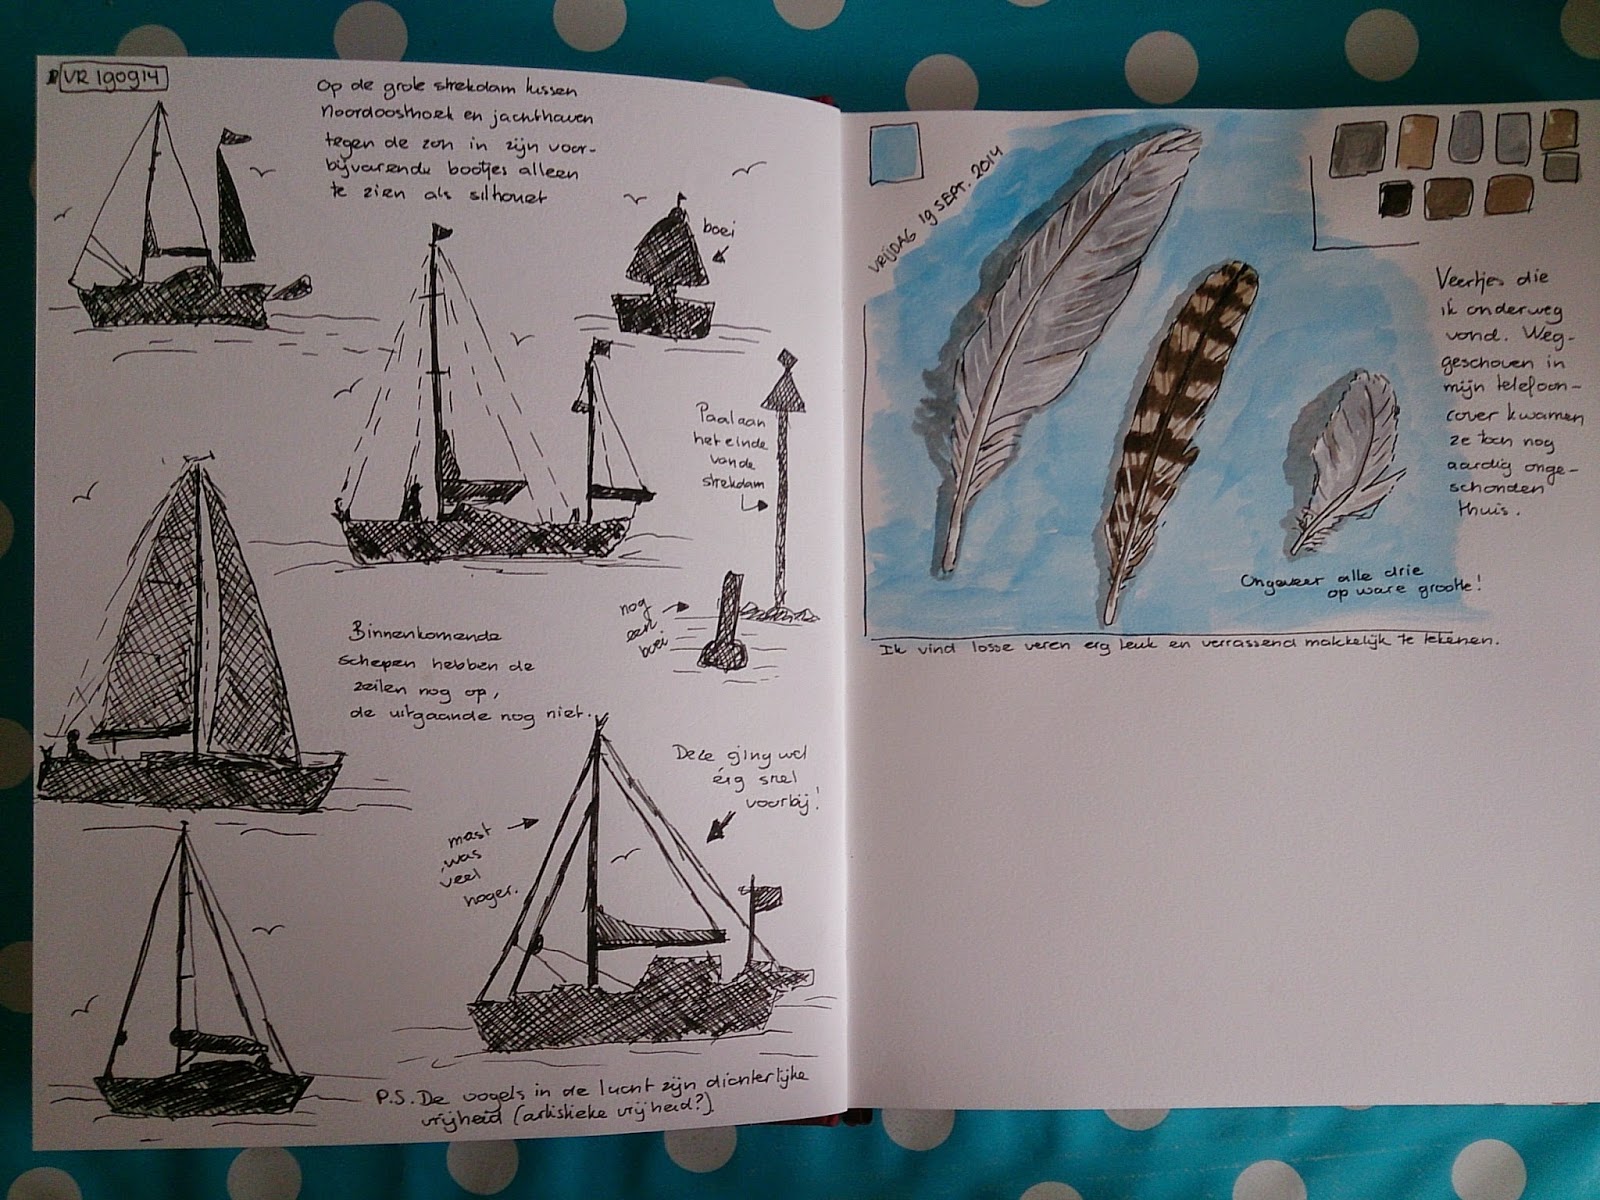 VR 190914
Op de grote strekdam tussen
Noordoosthoek en jachthaven
tegen de zon in zijn voor-
bijvarende bootjes alleen
te zien als silhouet
boei
Paal aan
het einde
van de
strekdam
nog
een
boei
Binnenkomende
schepen hebben de
zeilen nog op,
de uitgaande nog niet.
Deze ging wel
érg snel
voorbij!
mast
was
veel
hoger.
P.S. De vogels in de lucht zijn dichterlijke
vrijheid (artistieke vrijheid?).
VRIJDAG 19 SEPT. 2014
Veertjes die
ik onderweg
vond. Weg-
geschoven in
mijn telefoon-
cover kwamen
ze toch nog
aardig onge-
schonden
thuis.
Ongeveer alle drie
op ware grootte!
Ik vind losse veren erg leuk en verrassend makkelijk te tekenen.